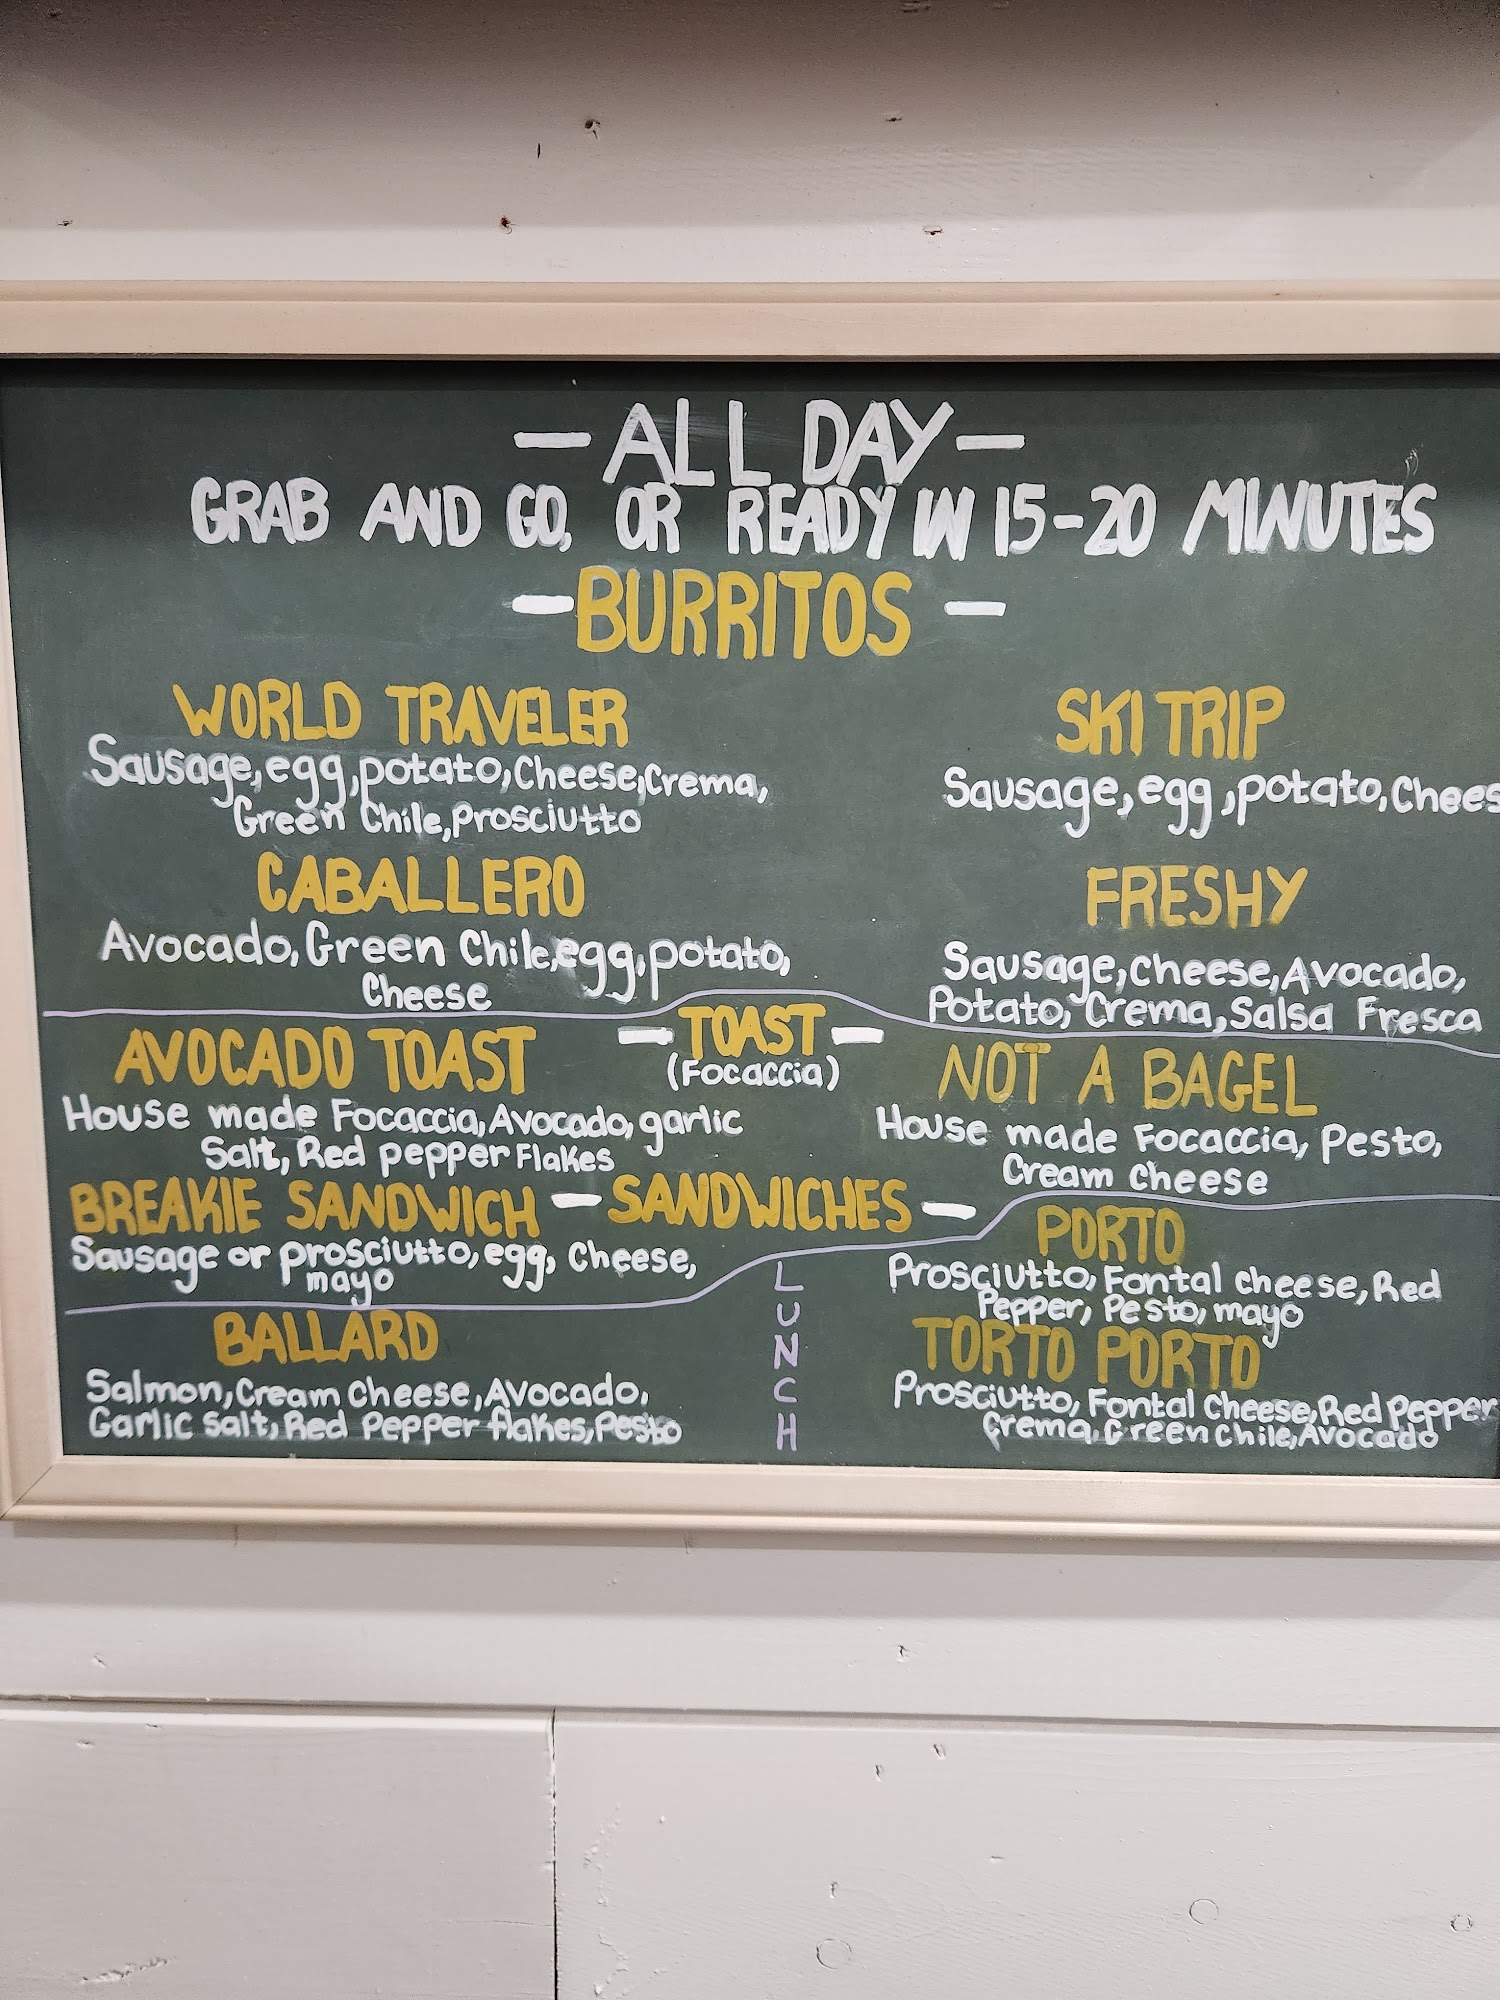 — ALL DAY —
GRAB AND GO, OR READY IN 15-20 MINUTES
— BURRITOS —
WORLD TRAVELER
Sausage, egg, potato, Cheese, Crema,
Green Chile, Prosciutto
SKI TRIP
Sausage, egg, potato, Chees
CABALLERO
Avocado, Green Chile, egg, potato,
Cheese
FRESHY
Sausage, Cheese, Avocado,
Potato, Crema, Salsa Fresca
— TOAST —
(Focaccia)
AVOCADO TOAST
House made Focaccia, Avocado, garlic
Salt, Red pepper Flakes
NOT A BAGEL
House made Focaccia, Pesto,
Cream Cheese
— SANDWICHES —
BREAKIE SANDWICH
Sausage or prosciutto, egg, Cheese,
mayo
LUNCH
PORTO
Prosciutto, Fontal cheese, Red
Pepper, Pesto, mayo
BALLARD
Salmon, Cream Cheese, Avocado,
Garlic Salt, Red Pepper flakes, Pesto
TORTO PORTO
Prosciutto, Fontal Cheese, Red Pepper
Crema, Green Chile, Avocado